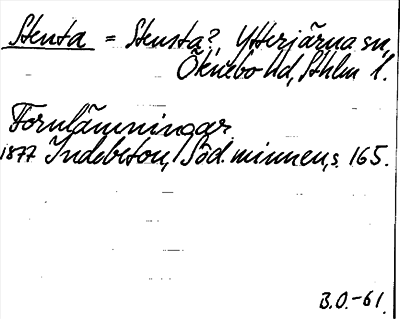 Stenta = Stensta?, Ytterjärna sn,
Öknebo hd, Sthlm l.
Fornlämningar.
1877 Indebetou, Söd. minnen, s. 165.
B.O.-61.